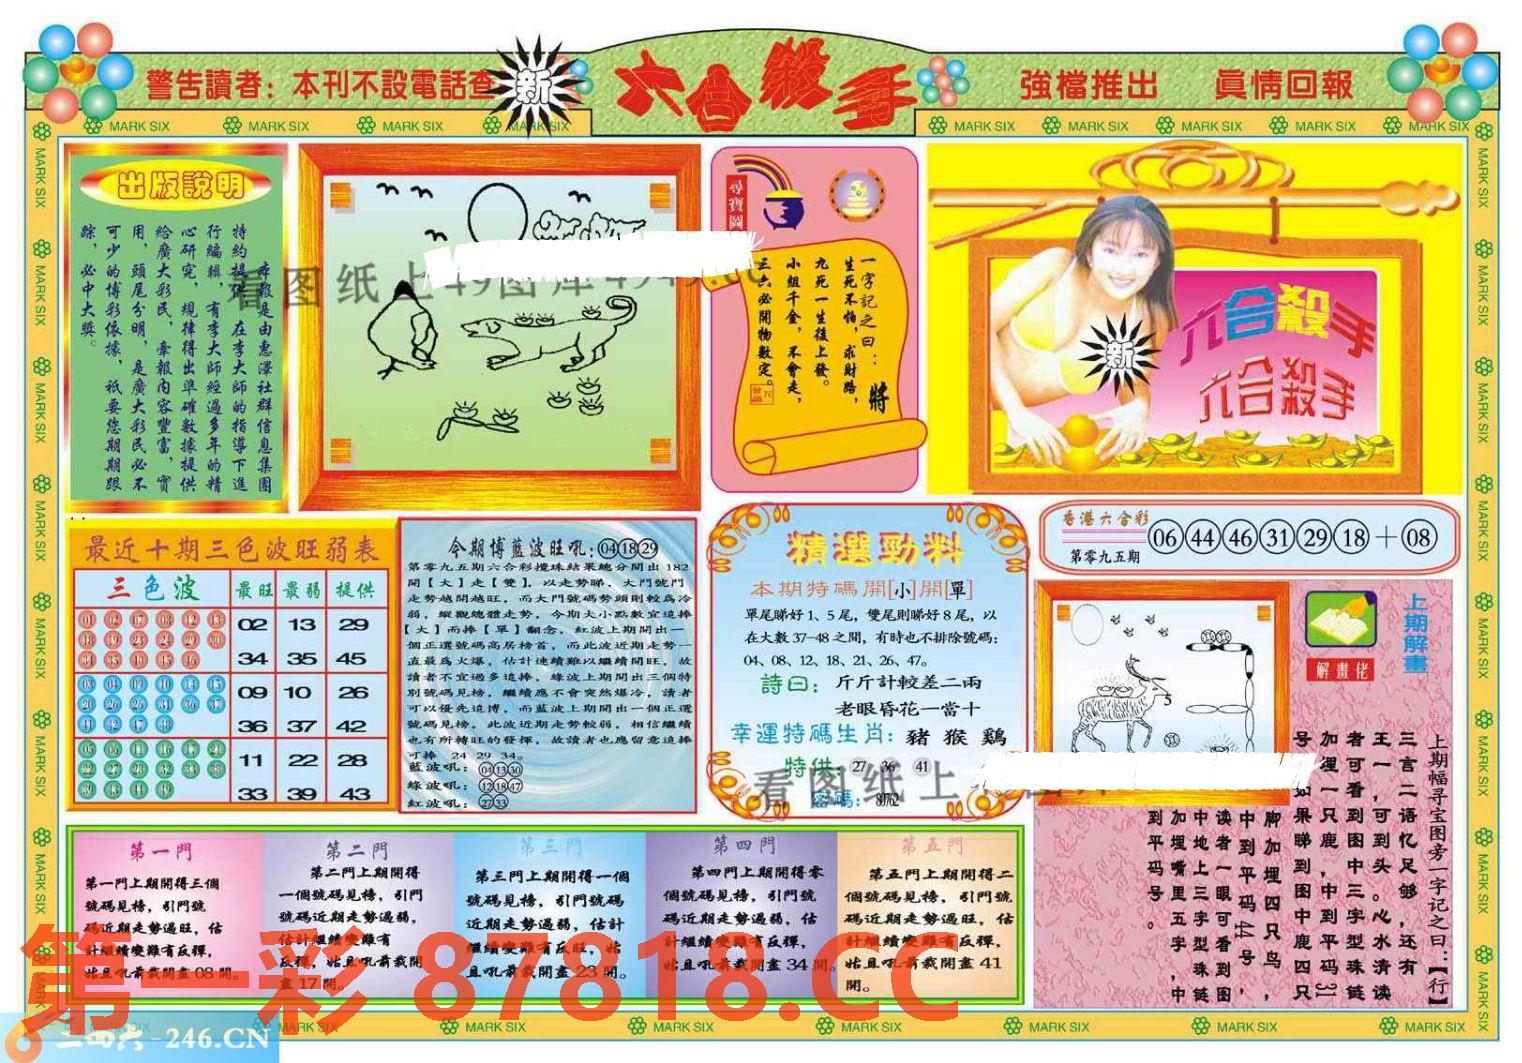 警告讀者：本刊不設電話查
新
六合殺手
強檔推出 眞情回報
MARK SIX
出版說明
本報是由惠澤社群信息集團
特約提供，在李大師的指導下進
行編輯，有李大師經過多年的精
心研究，規律得出準確數據提供
給廣大彩民，牽報內容豐富，實
用，頭尾分明，是廣大彩民必不
可少的博彩依據，祇要您期期跟
踪，必中大獎。
尋寶圖
一字記之曰：將
生死不怕，求財路，
九死一生後上發。
小姐千金，不會走，
三六必開物數定。
六合殺手
六合殺手
新
最近十期三色波旺弱表
三色波 最旺 最弱 提供
02 13 29
34 35 45
09 10 26
36 37 42
11 22 28
33 39 43
今期博藍波旺吼：04 18 29
第零九五期六合彩攪珠結果總分開出182
開【大】走【雙】，以走勢睇，大門號門
走勢越開越旺，而大門號碼勢頭則較爲冷
弱，縱觀總體走勢，今期大小點數宜追捧
【大】而捧【單】翻念，紅波上期開出一
個正選號碼高居榜首，而此波近期走勢一
直最爲火爆，估計連續難以繼續開旺，故
讀者不宜過多追捧，綠波上期開出三個特
別號碼見榜，繼續應不會突然爆冷，讀者
可以優先追博，而藍波上期開出一個正選
號碼見榜，此波近期走勢較弱，相信繼續
也有所轉旺的發揮，故讀者也應留意追捧
可捧 24 29 34。
藍波吼：04 13 30
綠波吼：12 18 47
紅波吼：27 33
精選勁料
本期特碼開[小]開[單]
單尾睇好1、5尾，雙尾則睇好8尾，以
在大數37-48之間，有時也不排除號碼：
04、08、12、18、21、26、47。
詩曰：斤斤計較差二兩
老眼昏花一當十
幸運特碼生肖：豬 猴 鷄
特供：27 36 41
密碼：80762
香港六合彩
第零九五期
06 44 46 31 29 18 + 08
上期解畫
解畫佬
5
上期幅寻宝图旁一字记之曰：【行】
三言二语忆足够，还有
王一，可到头。心水清读
者可看到图中三字型珠链
加埋一只鹿，中到平码31
号，如果睇到图中鹿四只
脚加埋四只鸟，
中到平码44号，
读者一眼可看到图
中地上三字型珠链
加埋嘴里五字，中
到平码号。
第一門
第一門上期開得三個
號碼見榜，引門號
碼近期走勢過旺，估
計繼續變難有反彈，
姑且吼前裁開盡08開。
第二門
第二門上期開得
一個號碼見榜，引門
號碼近期走勢過弱，
估計繼續變難有
反彈，姑且吼前裁開
盡17開。
第三門
第三門上期開得一個
號碼見榜，引門號碼
近期走勢過弱，估計
繼續變難有反旺，姑
且吼前裁開盡23開。
第四門
第四門上期開得零
個號碼見榜，引門號
碼近期走勢過弱，估
計繼續變難有反彈，
姑且吼前裁開盡34開。
第五門
第五門上期開得二
個號碼見榜，引門號
碼近期走勢過旺，估
計繼續變難有反彈，
姑且吼前裁開盡41
開。
第一彩 87818.CC
二四六-246.CN